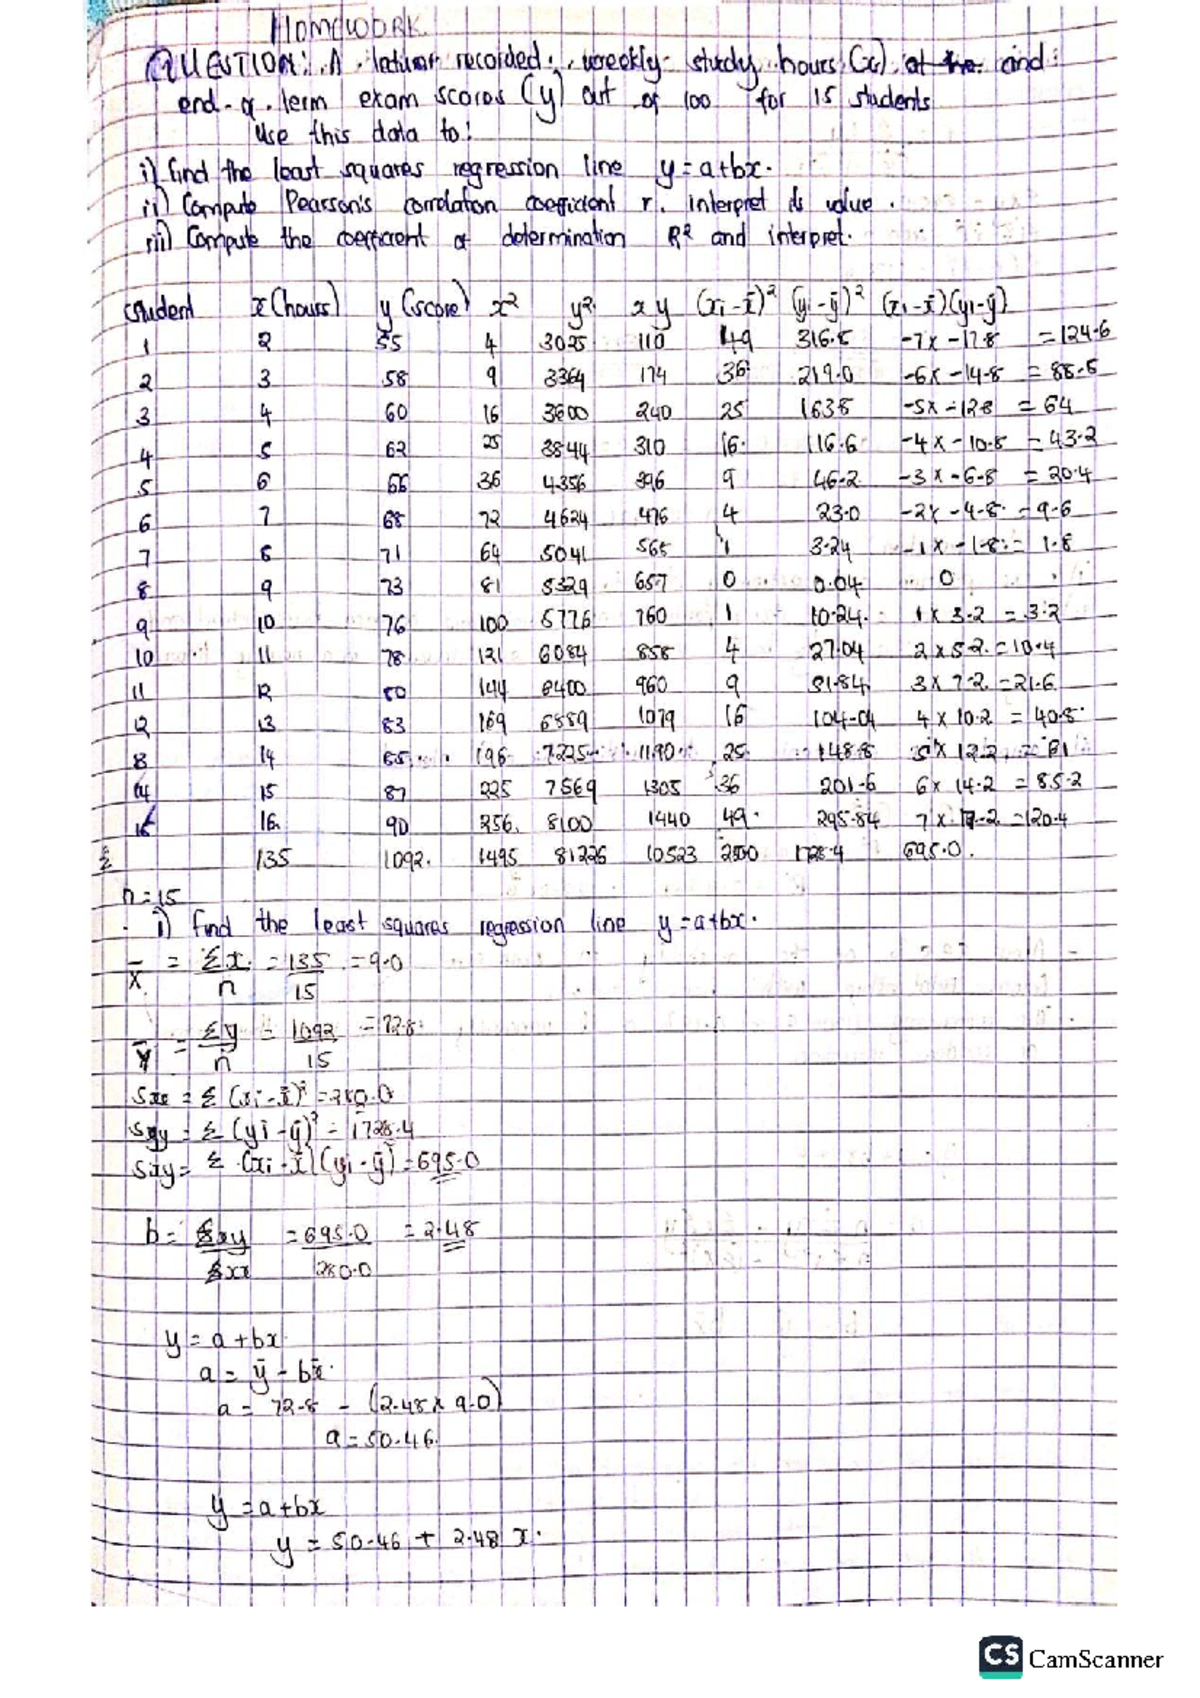 HOMEWORK
QUESTION: A lecturer recorded weekly study hours (x) at the and
end-of-term exam scores (y) out of 100 for 15 students
Use this data to:
i) Find the least squares regression line y=a+bx.
ii) Compute Pearson's correlation coefficient r. interpret its value.
iii) Compute the coefficient of determination R² and interpret.
student x (hours) y (score) x² y² xy (xi-x̄)² (yi-ȳ)² (xi-x̄)(yi-ȳ)
1 2 55 4 3025 110 49 316.8 -7x-17.8 =124.6
2 3 58 9 3364 174 36 219.0 -6x-14.8 = 88.8
3 4 60 16 3600 240 25 163.8 -5x-12.8 = 64
4 5 62 25 3844 310 16 116.6 -4x-10.8 = 43.2
5 6 66 36 4356 396 9 46.2 -3x-6.8 = 20.4
6 7 68 72 4624 476 4 23.0 -2x-4.8 = 9.6
7 8 71 64 5041 568 1 3.24 -1x-1.8 = 1.8
8 9 73 81 5329 657 0 0.04 0
9 10 76 100 5776 760 1 10.24 1x3.2 = 3.2
10 11 78 121 6084 858 4 27.04 2x5.2 = 10.4
11 12 80 144 6400 960 9 51.84 3x7.2 = 21.6
12 13 83 169 6889 1079 16 104.04 4x10.2 = 40.8
13 14 85 196 7225 1190 25 148.8 5x12.2 = 61
14 15 87 225 7569 1305 36 201.6 6x14.2 = 85.2
15 16 90 256 8100 1440 49 295.84 7x17.2 =120.4
Σ 135 1092 1495 81226 10523 280 1728.4 695.0
n=15
i) Find the least squares regression line y=a+bx.
x̄ = Σx/n = 135/15 = 9.0
ȳ = Σy/n = 1092/15 = 72.8
Sxx = Σ(xi-x̄)² = 280.0
Syy = Σ(yi-ȳ)² = 1728.4
Sxy = Σ(xi-x̄)(yi-ȳ) = 695.0
b = Sxy/Sxx = 695.0/280.0 = 2.48
y = a+bx
a = ȳ - bx̄
a = 72.8 - (2.48x9.0)
a = 50.46
y = a+bx
y = 50.46 + 2.48x.
CS CamScanner